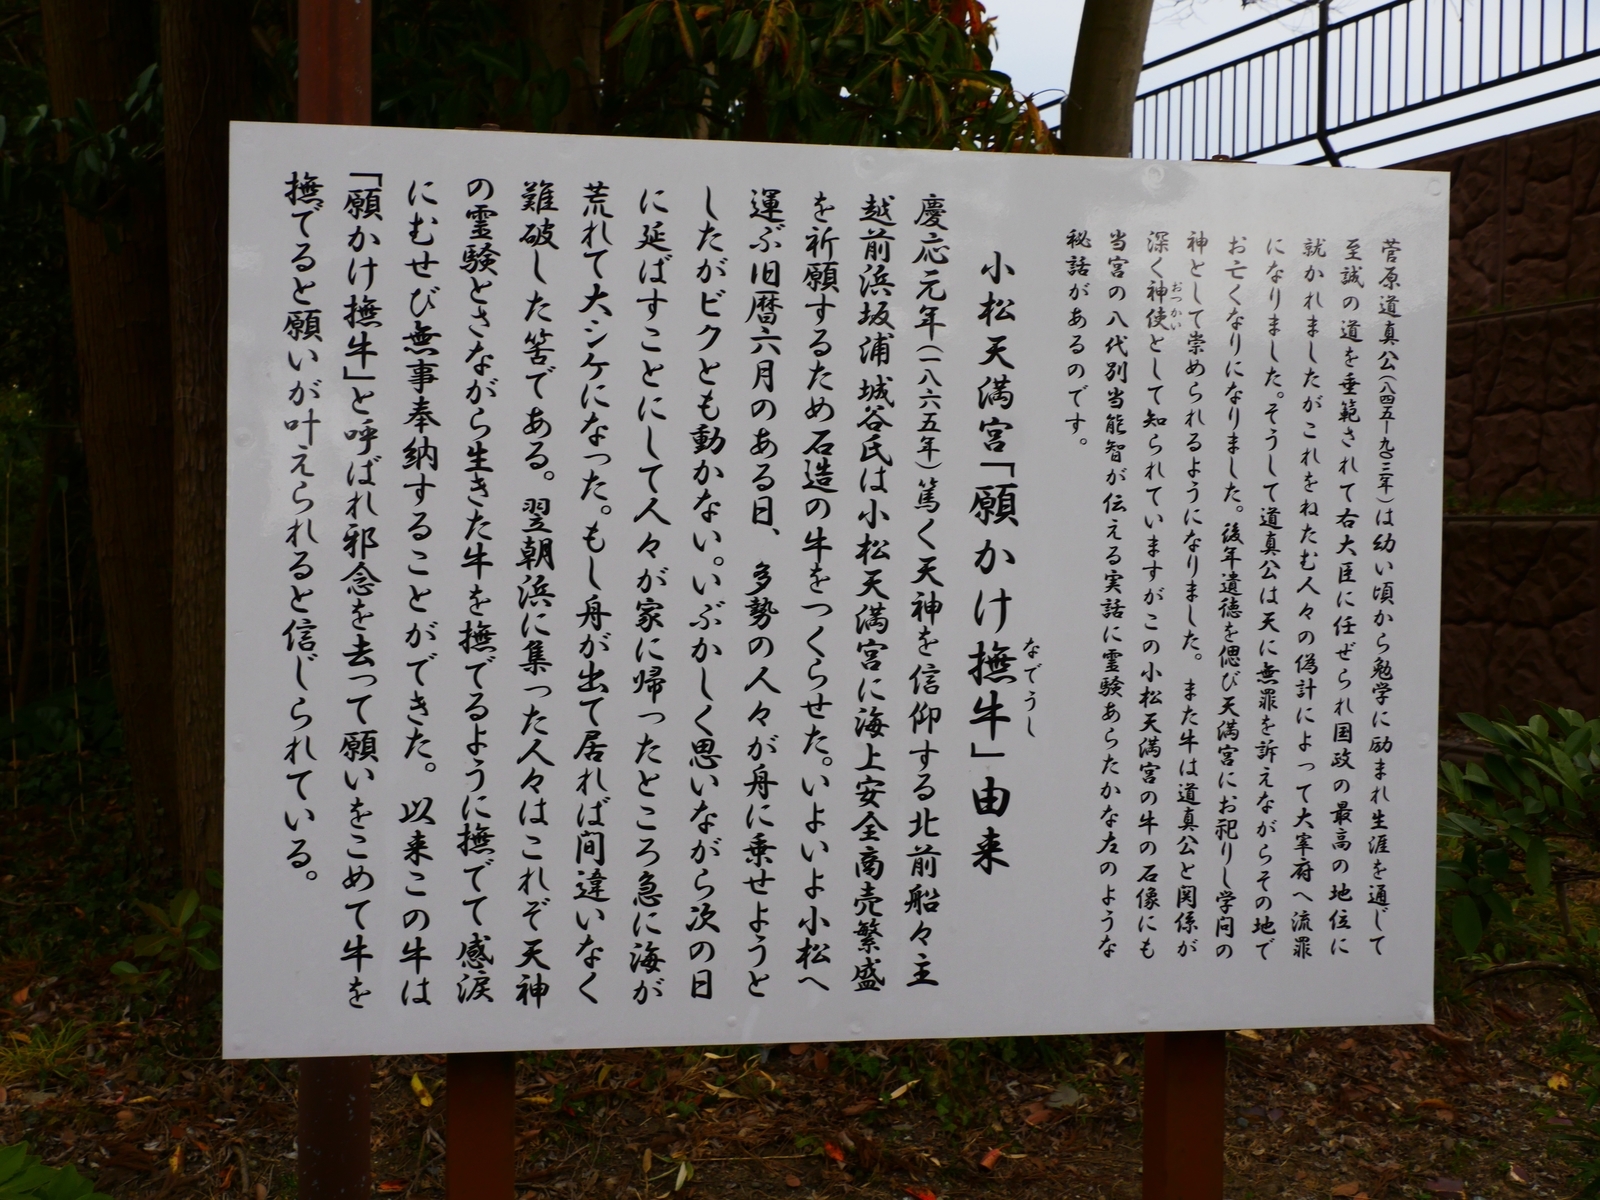 菅原道真公(八四五―九〇三年)は幼い頃から勉学に励まれ生涯を通じて
至誠の道を垂範されて右大臣に任ぜられ国政の最高の地位に
就かれましたがこれをねたむ人々の偽計によって大宰府へ流罪
になりました。そうして道真公は天に無罪を訴えながらその地で
お亡くなりになりました。後年遺徳を偲び天満宮にお祀りし学問の
神として崇められるようになりました。また牛は道真公と関係が
深く神使として知られていますがこの小松天満宮の牛の石像にも
おつかい
当宮の八代別当能智が伝える実話に霊験あらたかな左のような
秘話があるのです。
小松天満宮「願かけ撫牛」由来
なでうし
慶応元年(一八六五年)篤く天神を信仰する北前船々主
越前浜坂浦城谷氏は小松天満宮に海上安全商売繁盛
を祈願するため石造の牛をつくらせた。いよいよ小松へ
運ぶ旧暦六月のある日、多勢の人々が舟に乗せようと
したがビクとも動かない。いぶかしく思いながら次の日
に延ばすことにして人々が家に帰ったところ急に海が
荒れて大シケになった。もし舟が出て居れば間違いなく
難破した筈である。翌朝浜に集った人々はこれぞ天神
の霊験とさながら生きた牛を撫でるように撫でて感涙
にむせび無事奉納することができた。以来この牛は
「願かけ撫牛」と呼ばれ邪念を去って願いをこめて牛を
撫でると願いが叶えられると信じられている。